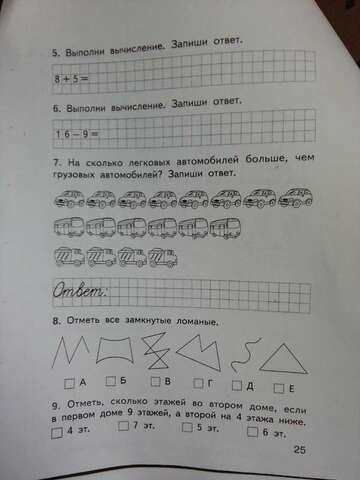 5. Выполни вычисление. Запиши ответ.
8 + 5 =
6. Выполни вычисление. Запиши ответ.
1 6 – 9 =
7. На сколько легковых автомобилей больше, чем
грузовых автомобилей? Запиши ответ.
Ответ:
8. Отметь все замкнутые ломаные.
А Б В Г Д Е
9. Отметь, сколько этажей во втором доме, если
в первом доме 9 этажей, а второй на 4 этажа ниже.
4 эт. 7 эт. 5 эт. 6 эт.
25